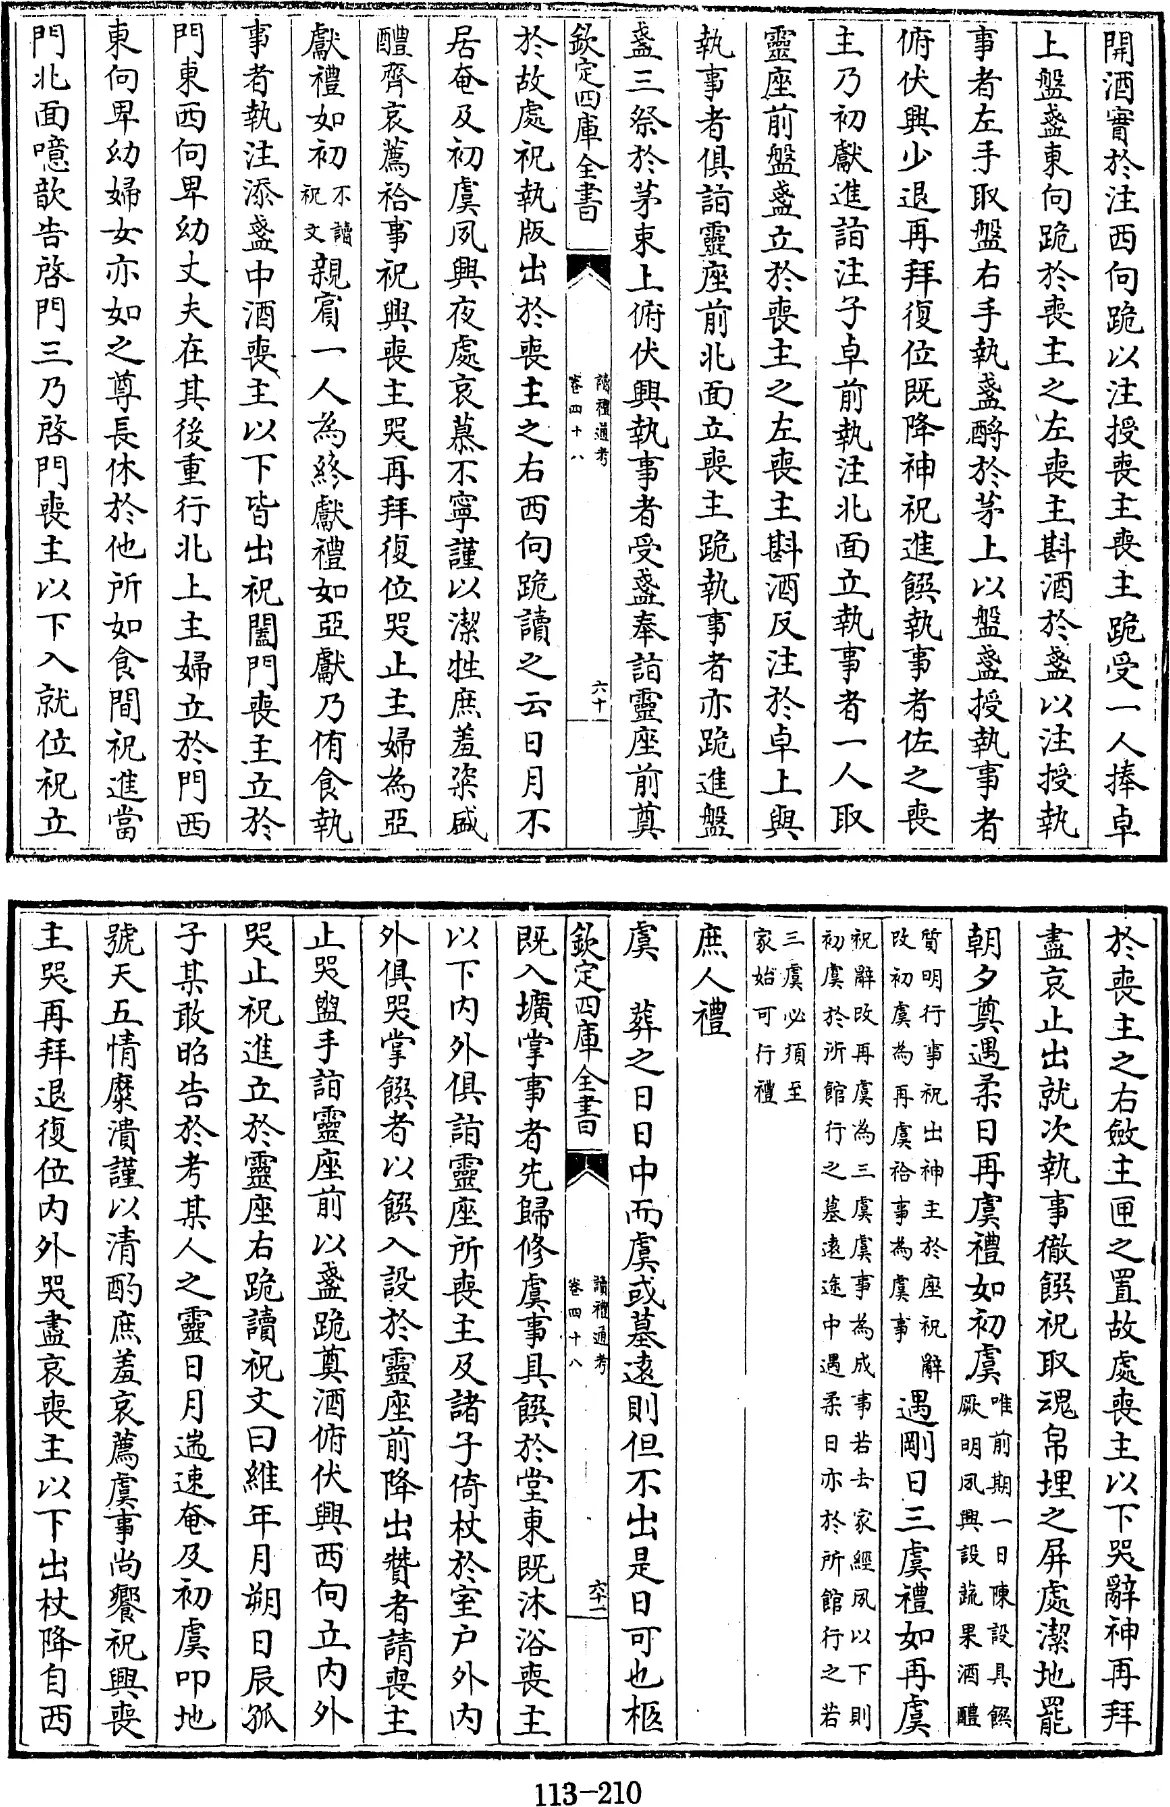 開酒實於注西向跪以注授喪主喪主跪受一人捧卓
上盤盞東向跪於喪主之左喪主斟酒於盞以注授執
事者左手取盤右手執盞酹於茅上以盤盞授執事者
俯伏興少退再拜復位既降神祝進饌執事者佐之喪
主乃初獻進詣注子卓前執注北面立執事者一人取
靈座前盤盞立於喪主之左喪主斟酒反注於卓上與
執事者俱詣靈座前北面立喪主跪執事者亦跪進盤
盞三祭於茅束上俯伏興執事者受盞奉詣靈座前奠
欽定四庫全書
讀禮通考
卷四十八
六十
於故處祝執版出於喪主之右西向跪讀之云日月不
居奄及初虞夙興夜處哀慕不寧謹以潔牲庶羞粢盛
醴齊哀薦祫事祝興喪主哭再拜復位哭止主婦為亞
獻禮如初不讀祝文親賓一人為終獻禮如亞獻乃侑食執
事者執注添盞中酒喪主以下皆出祝闔門喪主立於
門東西向卑幼丈夫在其後重行北上主婦立於門西
東向卑幼婦女亦如之尊長休於他所如食間祝進當
門北面噫歆告啓門三乃啓門喪主以下入就位祝立
於喪主之右斂主匣之置故處喪主以下哭辭神再拜
盡哀止出就次執事徹饌祝取魂帛埋之屏處潔地罷
朝夕奠遇柔日再虞禮如初虞唯前期一日陳設具饌厥明夙興設蔬果酒醴
質明行事祝出神主於座祝辭改初虞為再虞祫事為虞事遇剛日三虞禮如再虞
祝辭改再虞為三虞虞事為成事若去家經夙以下則
初虞於所館行之墓遠途中遇柔日亦於所館行之若
三虞必須至
家始可行禮
庶人禮
虞　葬之日日中而虞或墓遠則但不出是日可也柩
欽定四庫全書
讀禮通考
卷四十八
六十一
既入壙掌事者先歸修虞事具饌於堂東既沐浴喪主
以下內外俱詣靈座所喪主及諸子倚杖於室户外內
外俱哭掌饌者以饌入設於靈座前降出贊者請喪主
止哭盥手詣靈座前以盞跪奠酒俯伏興西向立內外
哭止祝進立於靈座右跪讀祝文曰維年月朔日辰孤
子某敢昭告於考某人之靈日月遄速奄及初虞叩地
號天五情糜潰謹以清酌庶羞哀薦虞事尚饗祝興喪
主哭再拜退復位內外哭盡哀喪主以下出杖降自西
113-210